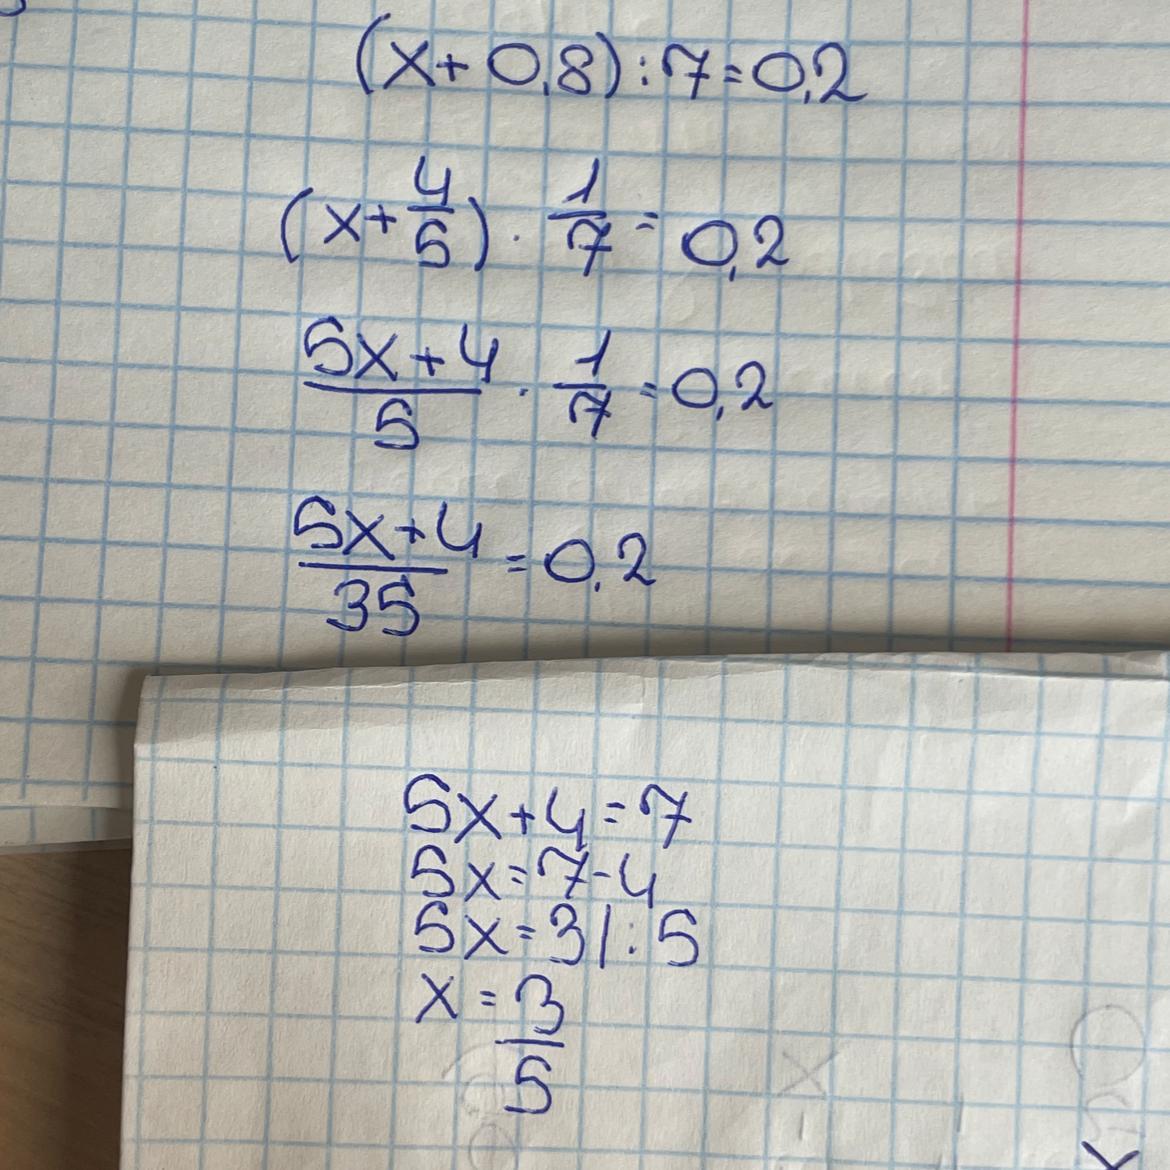 (x+0,8):7=0,2
(x+4/5)·1/7=0,2
5x+4/5·1/7=0,2
5x+4/35=0,2
5x+4=7
5x=7-4
5x=3|:5
x=3/5